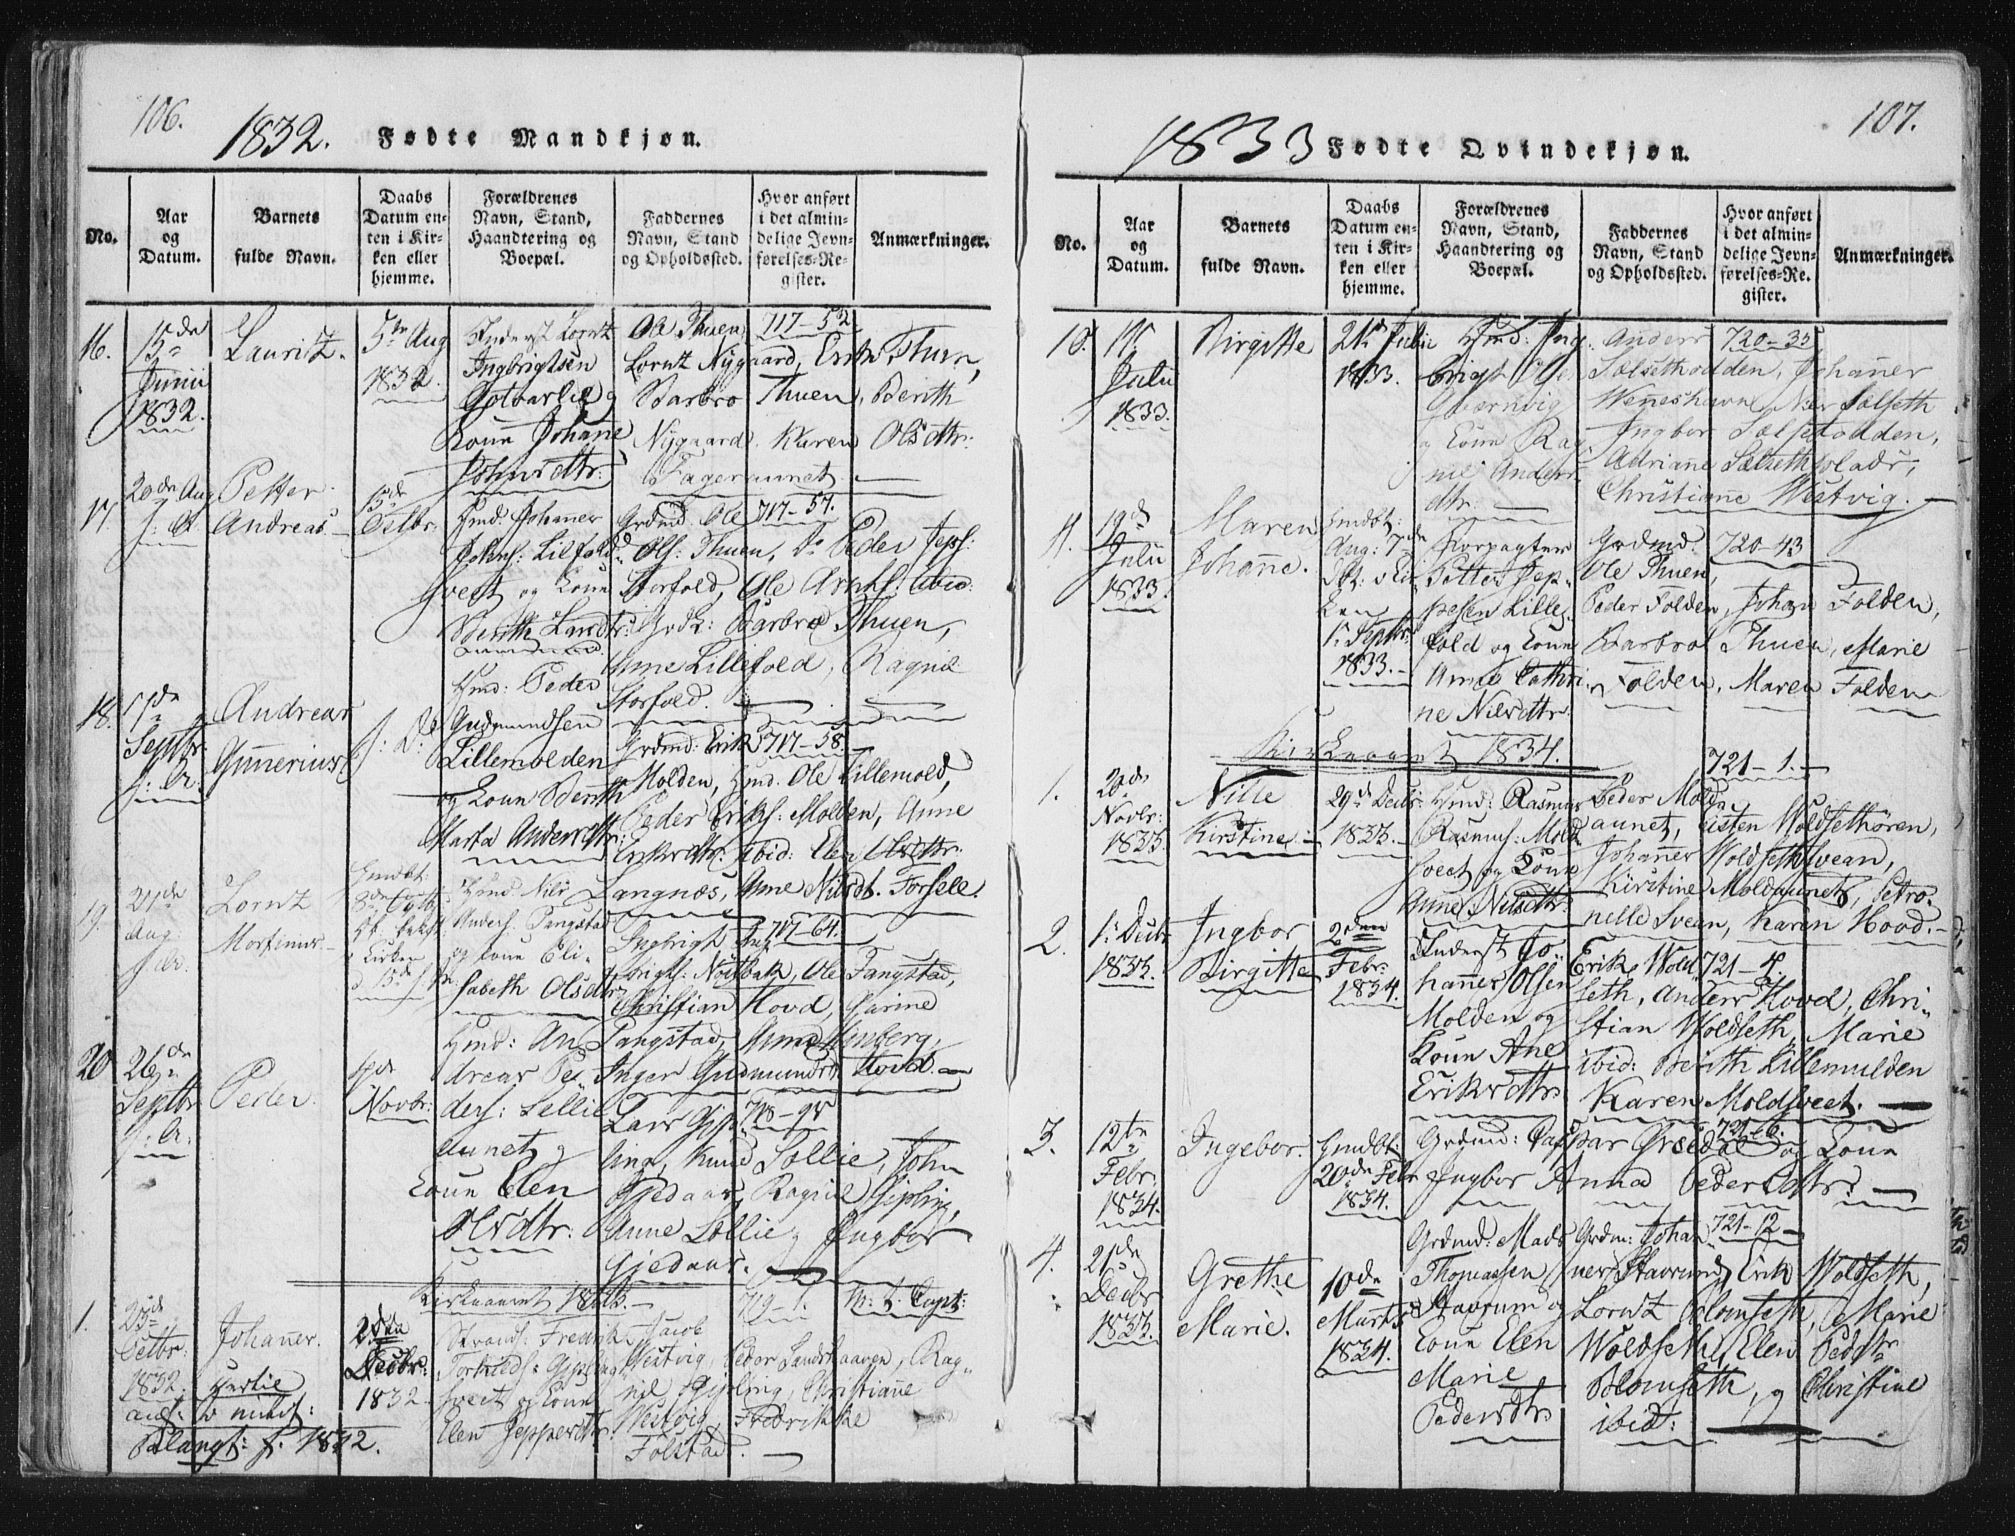 106.
1832. Fødte Mandkjøn.
No.
Aar og Datum.
Barnets fulde Navn.
Daabs Datum enten i Kirken eller hjemme.
Forældrenes Navn, Stand, Haandtering og Boepæl.
Faddernes Navn, Stand og Opholdssted.
Hvor anført i det almindelige Jevnførelses-Register.
Anmærkninger.
16.
15de
Junii
1832.
Lauritz.
5te Aug
1832.
Inderst Lorntz
Ingbrigtsen
og
Kone Johane
Johnsdtr:
Ole Thuen, 717-52
Lorntz Nÿgaard, Erik Thuen,
Barbro Thuen, Berith
Nÿgaard. Karen Olsdtr:
Fageraunet. —
17.
20de Aug
f: A.
Petter
Andreas
15de
Octbr:
Hmd: Johaner
Johns: Lilfold
hveet og Kone
Berithe Larsdtr:
Grdmd: Ole 717-57.
Ols: Thuen, Do Peder Jeps:
Storfold, Ole Arnts: ibid:
Grdk: Barbroe Thuen,
Anne Lillefold, Ragnil
Storfold. —
18.
17de
Septbr:
f: A:
Andreas
Gunerius
f: D:
Hmd: Peder
Gudmundsen
Lillemolden
og Kone Berith
Marta Andersdtr:
Grdmd: Erik 717-58.
Molden, Hmd. Ole Lillemold,
Peder Eriks: Molden, Anne
Eriksdtr: ibid: Elen Olsdtr:
Langnæs, Anne Nilsdt. Forsele.
19.
21de
Aug
f: A:
Lorntz
Mortinus
Hmdbt:
8de Octb
Kirken
d. 13de
Hmd Nils
Anders: Tangstad
og Kone Eli-
sabeth Olsdtr
Ingbrigt Ing 717-64.
brigts: Nøstbak, Ole Tangstad,
Christian Hovd, Marine
Tangstad, Anne Winberg,
Inger Gudmundsd: Hovd. —
20
26de
Septbr
f: A:
Peder.
4de
Novbr:
Hmd: An
dreas Pe-
ders: Sellie
aunet og
Kone Elen
Olsdtr:
Lars Gip- 718-74
ling, Knud Sollie, John
Gjedaas, Ragnil Gipling,
Anne Sollie, Ingbor
Gjedaas.
Kirkeaaret 1833. —
1.
23de
Octbr:
1832.
Johaner.
2den
Decbr:
1832
Strands: Fredrik
hveet og Kone
Elen Jeppesdtr:
Jacob 719-1.
Westvig, Peder Landstaaven, Rag-
nil Gipling, Christiane
Westvig, Fredrikke
Folstad. —
f. 1832.
107.
1833 Fødte Qvindekjøn.
No.
Aar og Datum.
Barnets fulde Navn.
Daabs Datum enten i Kirken eller hjemme.
Forældrenes Navn, Stand, Haandtering og Boepæl.
Faddernes Navn, Stand og Opholdssted.
Hvor anført i det almindelige Jevnførelses-Register.
Anmærkninger.
10.
Julii
1833.
Birgitte
21de Julii
1833.
Hmd: Ing-
brigt Ols:
Qværnvig
og Kone Rag
nil Anders
dtr: —
Anders 720-35
Sælsethodden, Johaner
Weneshavn, Næs Sælseth
Ingbor Sælsetodden,
Adriane Sælsethplads,
Christiane Westvig. —
11.
19de
Julii
1833
Maren
Johane.
Hmdbt:
Aug: 7de
1. Septbr:
1833. —
Korpagter
Petter Jep-
pesen Lille-
fold og Kone
Anne Cathri
ne Nilsdtr:
Grdmd: 720-43
Ole Thuen,
Peder Folden, Johan Folden,
Barbro Thuen, Marie
Folden, Maren Folden
Kirkeaaret 1834.
1.
20de
Novbr:
1833.
Nille
Kirstine
29de Decbr:
1833.
Hmd: Rasmus
Rasmus: Mold
hveet og Kone
Anne Nilsdtr:
Peder Mold 721-1. —
aunet, Eisten Woldsethøren,
Johaner Woldsethsvean,
Kirstine Moldaunet, Petro-
nelle Svean, Karen Hovd. —
2.
1: Decbr
1833.
Ingbor
Birgitte
2den
Febr:
1834.
Inderst Jo
haner Olsen
Molden og
Kone Ane
Eriksdtr:
Erik Wold 721-4.
seth, Anders Hovd, Chri-
stian Woldseth, Marie
ibid: Berith Lillemulden
Karen Moldhveet. —
3.
12te
Febr:
1834.
Ingebor.
Hmdbt:
20de Febr
1834.
Grdmd: Caspar Græedal og Kone
Ingbor Anna Pedersdtr: —
721-6.
4.
21de
Decbr
1833.
Grethe
Marie.
10de
Marts
1834.
Grdmd: Mads
Thomassen
Stavrum og
Kone Elen
Marie
Pedersdtr:
Grdm: Johan 721-12 —
nes Stavrum, Erik Woldseth,
Lorntz Blomseth, Marie
Woldseth, Elen Pedsdtr
Blomseth, og Christine
ibid: —